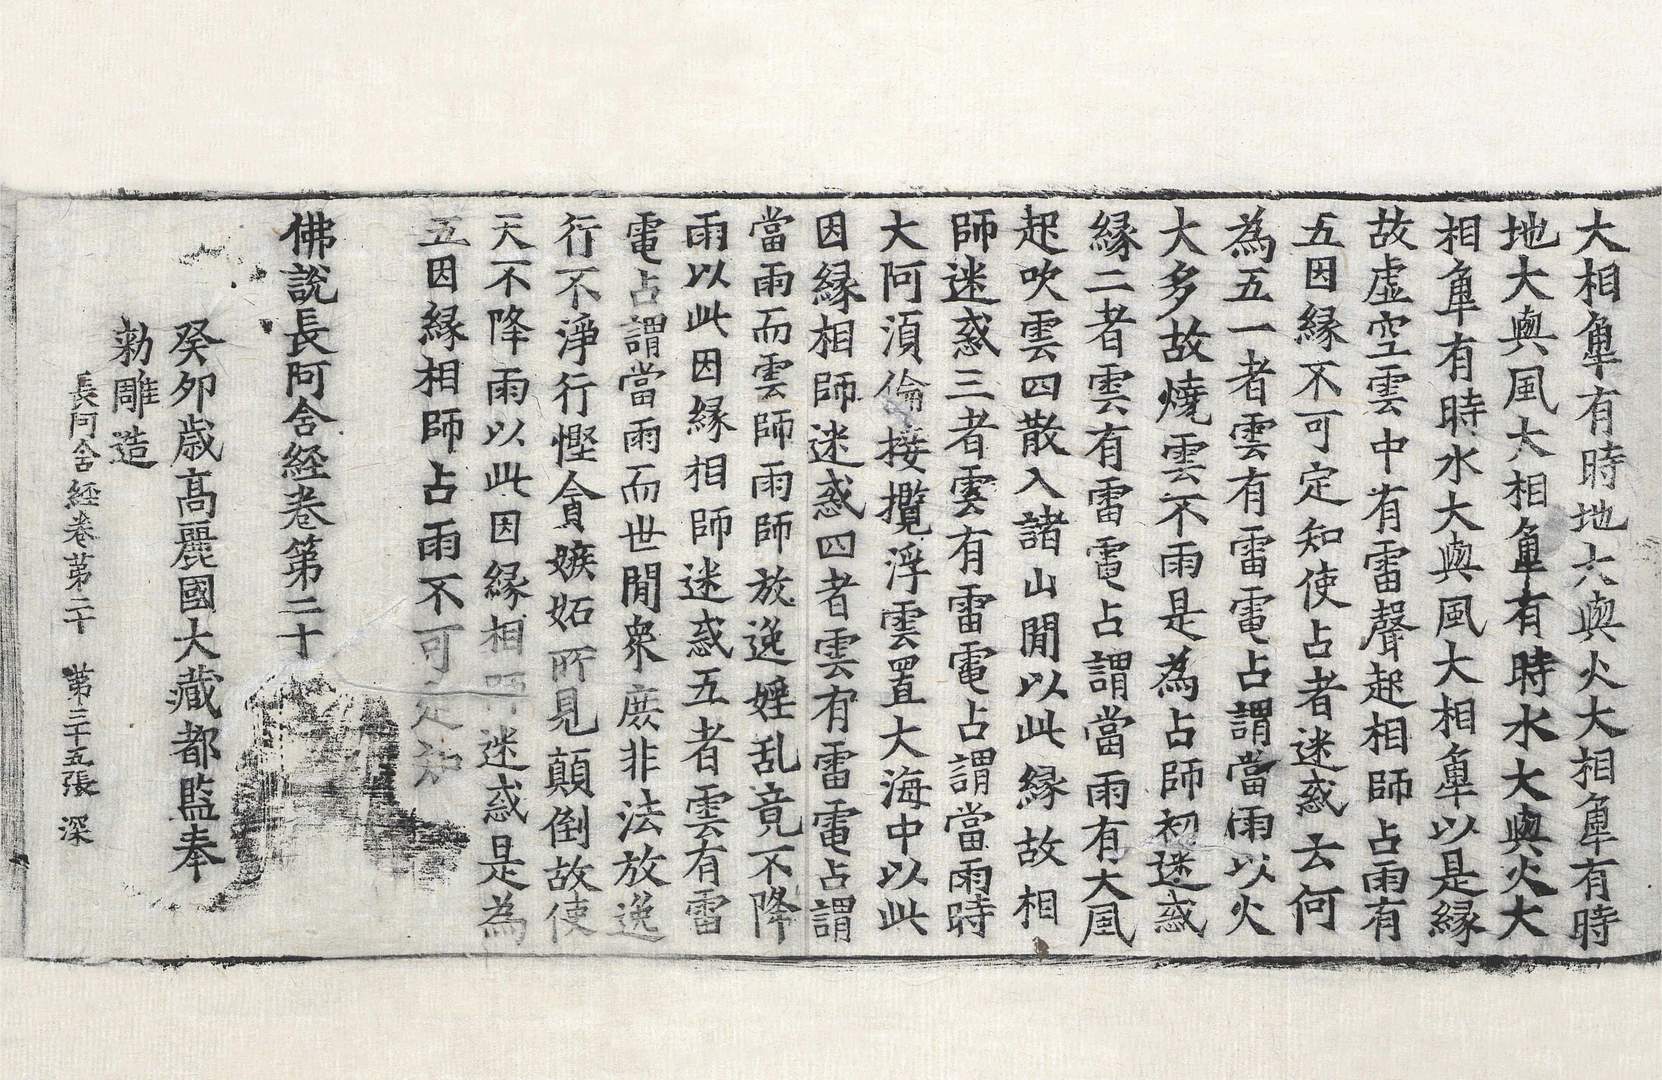 大相㪇有時地大與火大相㪇有時
地大與風大相㪇有時水大與火大
相㪇有時水大與風大相㪇以是緣
故虛空雲中有雷聲起相師占雨有
五因緣不可定知使占者迷惑云何
為五一者雲有雷電占謂當雨以火
大多故燒雲不雨是為占師初迷惑
緣二者雲有雷電占謂當雨有大風
起吹雲四散入諸山間以此緣故相
師迷惑三者雲有雷電占謂當雨時
大阿須倫接攬浮雲置大海中以此
因緣相師迷惑四者雲有雷電占謂
當雨而雲師雨師放逸婬乱竟不降
雨以此因緣相師迷惑五者雲有雷
電占謂當雨而世間衆庶非法放逸
行不淨行慳貪嫉妬所見顛倒故使
天不降雨以此因緣相師迷惑是為
五因緣相師占雨不可定知
佛說長阿含經卷第二十
癸卯歲高麗國大藏都監奉
勅雕造
長阿含經卷第二十 第三十五張 深